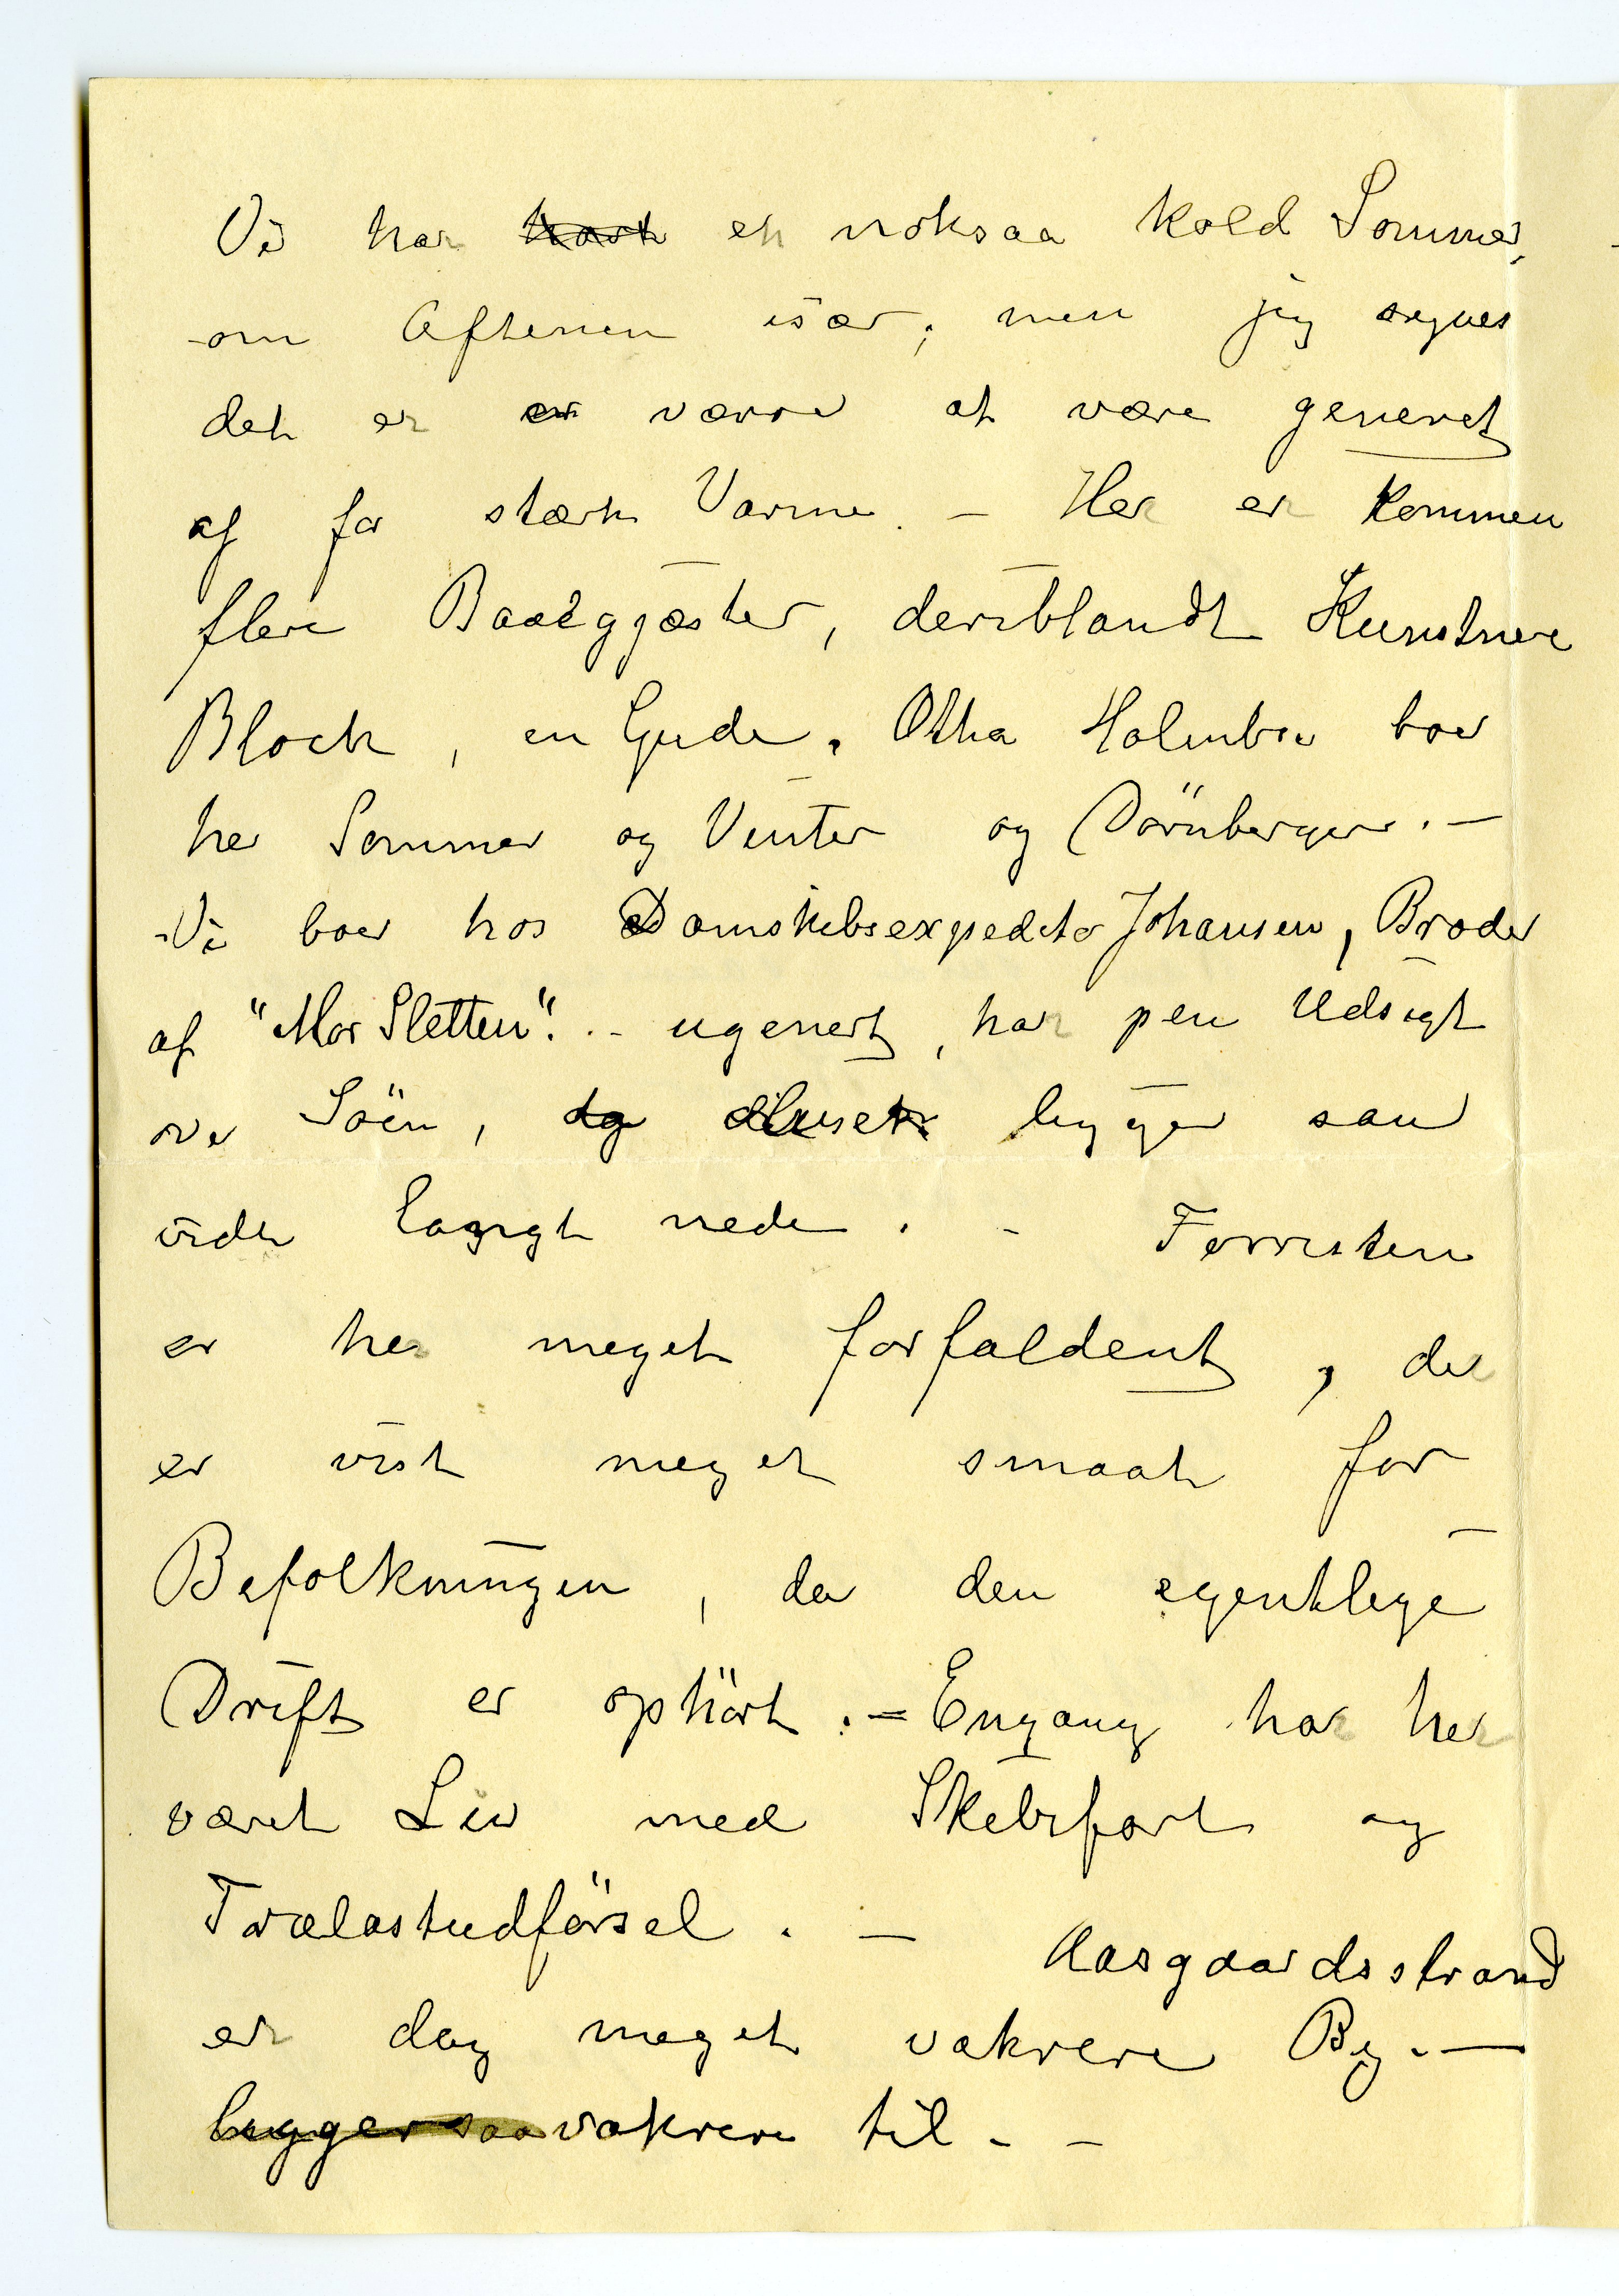 Vi har havt en noksaa kold Sommer,
om Aftenen især; men jeg synes
det er er værre at være generet
af for stærk Varme. – Her er kommen
flere Badegjæster, deriblandt Kunstner
Bloch, en Gude. Otha Holmboe boer
her Sommer og Vinter og Dörnberger. –
Vi boer hos Damskibsexpeditør Johansen, Broder
af "Mor Sletten". – ugenert, har pen Udsigt
over Söen, da Huset ligger saa
vidt langt nede. – Forresten
er her meget forfaldent, der
er vist meget smaat for
Befolkningen, da den egentlige
Drift er ophört. – Engang har her
været Liv med Skibsfart og
Trælastudförsel. – Aasgaardsstrand
er dog meget vakrere By. –
ligger saa vakrere til. –